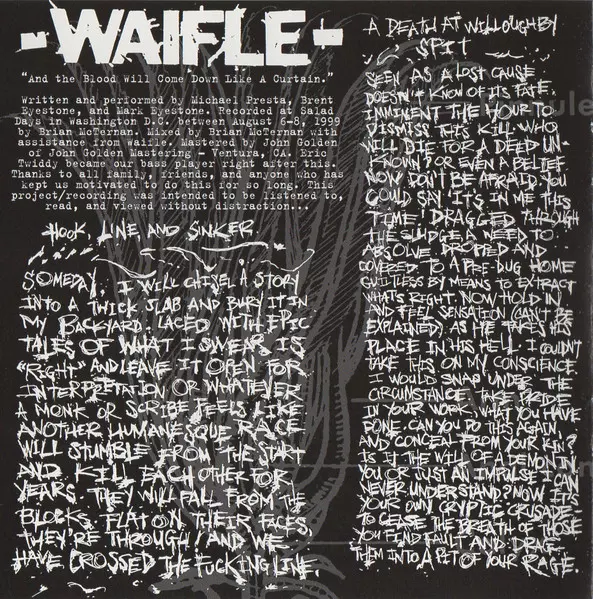 -WAIFLE-
"And the Blood Will Come Down Like A Curtain."
Written and performed by Michael Presta, Brent
Eyestone, and Mark Eyestone. Recorded at Salad
Days in Washington D.C. between August 6-8, 1999
by Brian McTernan. Mixed by Brian McTernan with
assistance from Waifle. Mastered by John Golden
of John Golden Mastering - Ventura, CA. Eric
Twiddy became our bass player right after this.
Thanks to all family, friends, and anyone who has
kept us motivated to do this for so long. This
project/recording was intended to be listened to,
read, and viewed without distraction...
HOOK, LINE AND SINKER
SOMEDAY, I WILL CHISEL A STORY
INTO A TWICK SLAB AND BURY IT IN
MY BACKYARD. LACED WITH EPIC
TALES OF WHAT I SWEAR IS
"RIGHT" AND LEAVE IT OPEN FOR
INTERPRETATION OR WHATEVER
A MONK OR SCRIBE FEELS LIKE
ANOTHER HUMANESQUE RACE
WILL STUMBLE FROM THE START
AND KILL EACH OTHER FOR
YEARS. THEY WILL FALL FROM THE
BLOCKS. FLAT ON THEIR FACES,
THEY'RE THROUGH! AND WE
HAVE CROSSED THE FUCKING LINE.
A DEATH AT WILLOUGHBY
SPIT
SEEN AS A LOST CAUSE
DOESN'T KNOW OF ITS FATE.
IMMINENT THE HOUR TO
DISMISS THIS KILL. WHO
WILL DIE FOR A DEED UN-
KNOWN? OR EVEN A BELIEF
NOW DON'T BE AFRAID. YOU
COULD SAY 'IT'S IN ME THIS
TIME.' DRAGGED THROUGH
THE SLUDGE A NEED TO
ABSOLVE. DROPPED AND
COVERED. TO A PRE-DUG HOME
GUILTLESS BY MEANS TO EXTRACT
WHAT'S RIGHT. NOW HOLD IN
AND FEEL SENSATION (CAN'T BE
EXPLAINED) AS HE TAKES HIS
PLACE IN HIS HELL. I COULDN'T
TAKE THIS ON MY CONSCIENCE
I WOULD SNAP UNDER THE
CIRCUMSTANCE. TAKE PRIDE
IN YOUR WORK, WHAT YOU HAVE
DONE. CAN YOU DO THIS AGAIN,
AND CONCEAL FROM YOUR KIN?
IS IT THE WILL OF A DEMON IN
YOU OR JUST AN IMPULSE I CAN
NEVER UNDERSTAND? NOW IT'S
YOUR OWN CRYPTIC CRUSADE-
TO CEASE THE BREATH OF THOSE
YOU FIND FAULT AND DRAG
THEM INTO A PIT OF YOUR RAGE.